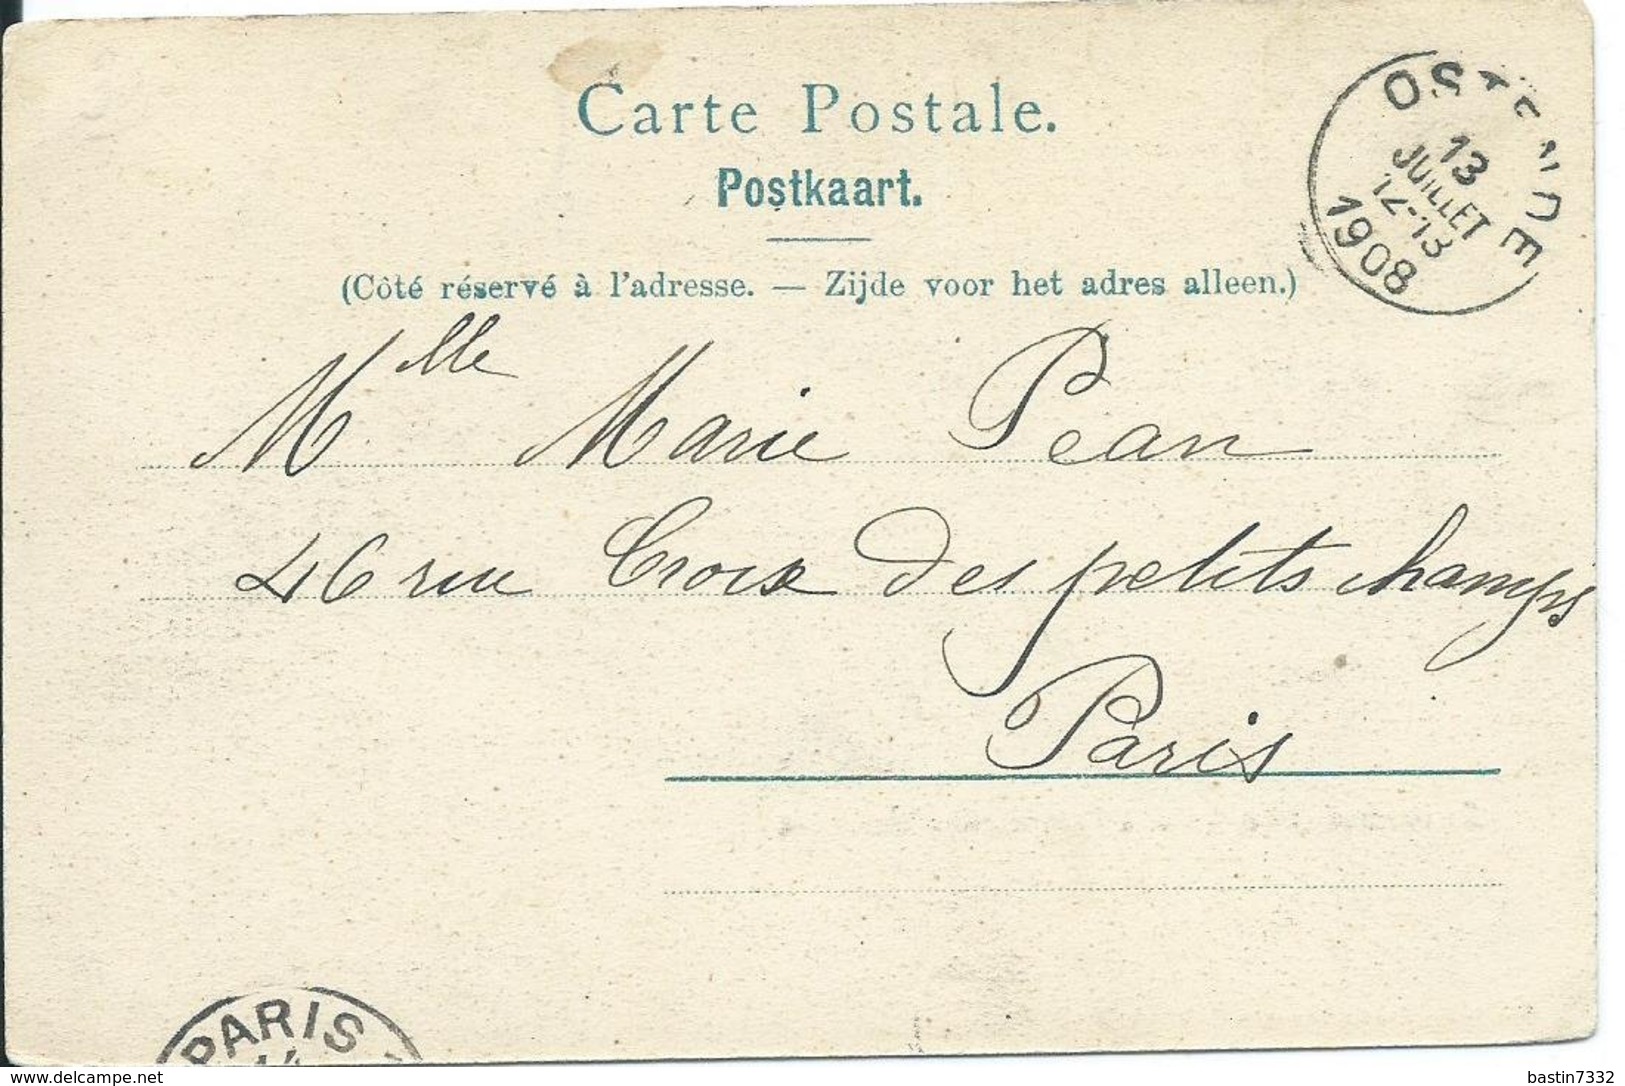 Carte Postale.
Postkaart.
(Côté réservé à l'adresse. — Zijde voor het adres alleen.)
OSTENDE
13
JUILLET
12-13
1908
Mlle Marie Pean
46 rue Croix des petits champs
Paris
PARIS
delcampe.net
bastin7332